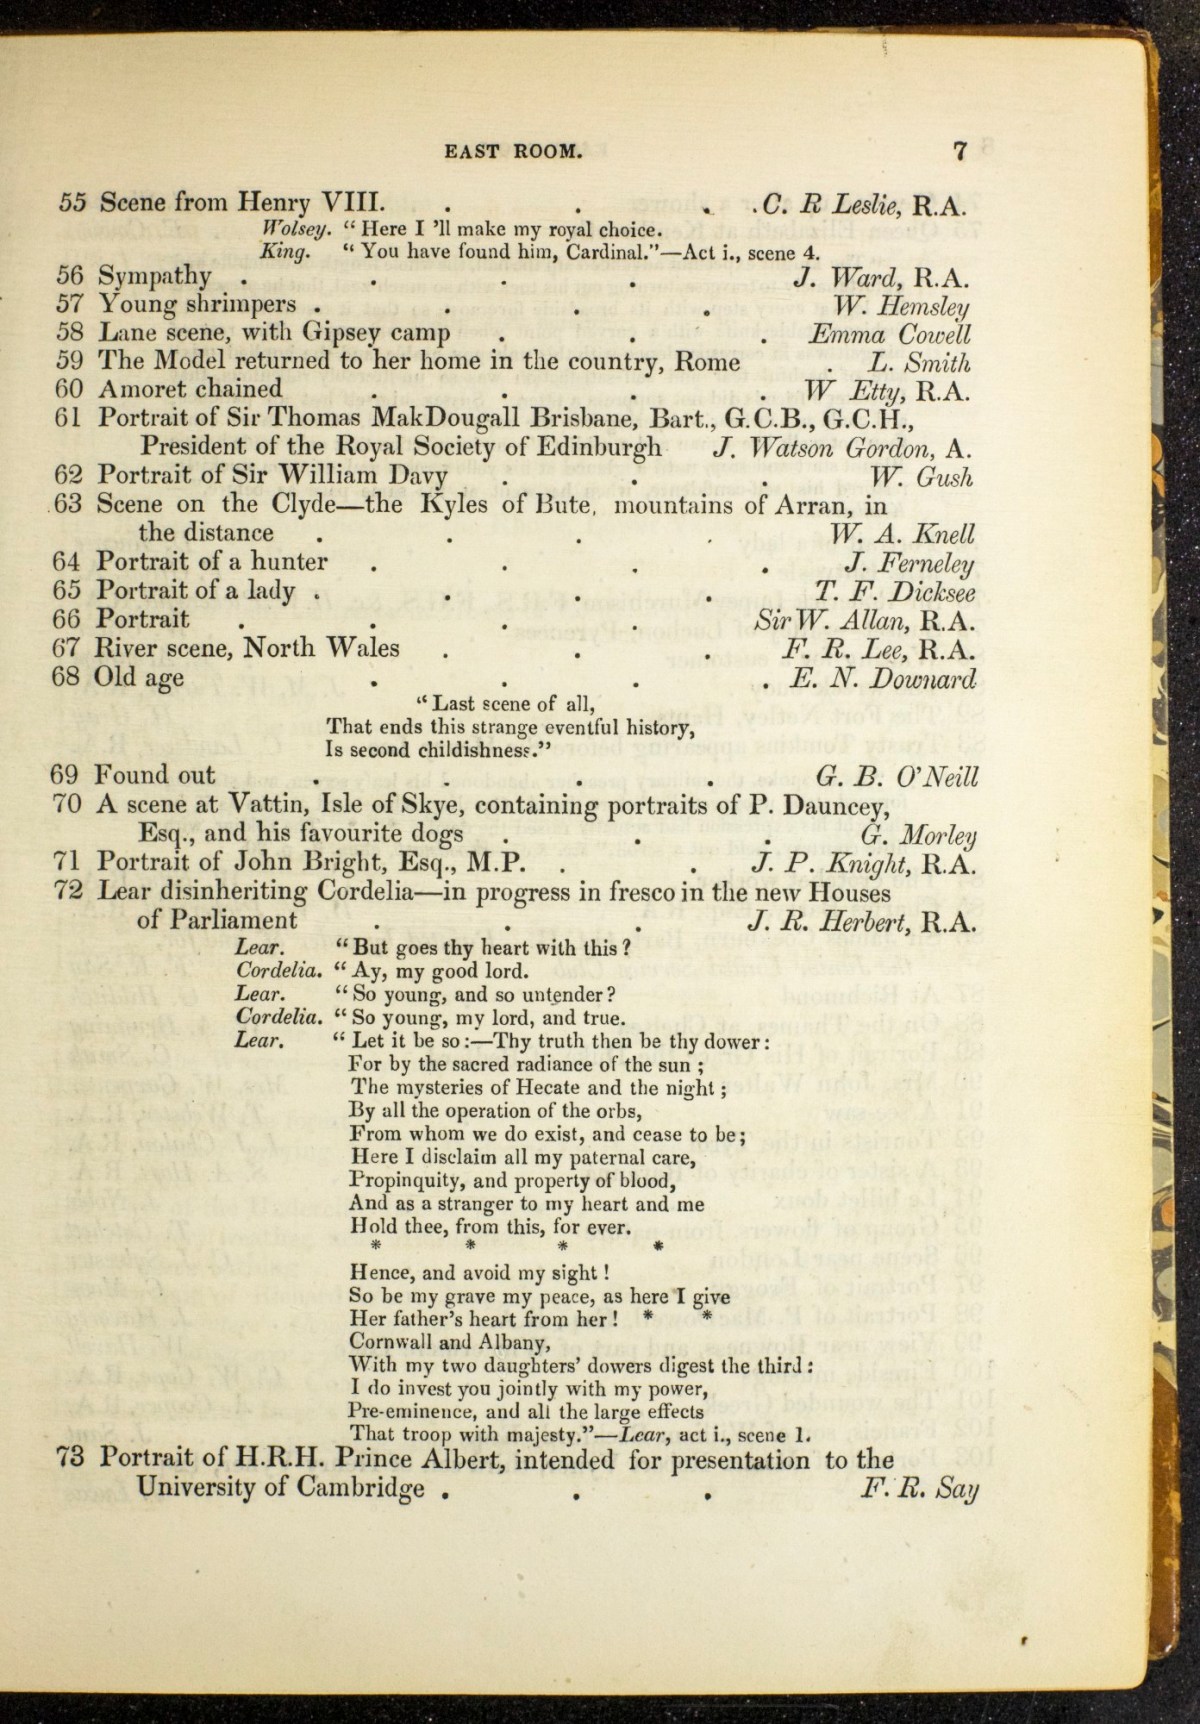 EAST ROOM. 7
55 Scene from Henry VIII. . . . . C. R Leslie, R.A.
Wolsey. “ Here I ’ll make my royal choice.
King. “ You have found him, Cardinal.”—Act i., scene 4.
56 Sympathy . . . . J. Ward, R.A.
57 Young shrimpers . . . . W. Hemsley
58 Lane scene, with Gipsey camp . . . Emma Cowell
59 The Model returned to her home in the country, Rome . L. Smith
60 Amoret chained . . . . W Etty, R.A.
61 Portrait of Sir Thomas MakDougall Brisbane, Bart., G.C.B., G.C.H.,
President of the Royal Society of Edinburgh J. Watson Gordon, A.
62 Portrait of Sir William Davy . . . W. Gush
63 Scene on the Clyde—the Kyles of Bute, mountains of Arran, in
the distance . . . . W. A. Knell
64 Portrait of a hunter . . . . J. Ferneley
65 Portrait of a lady . . . . T. F. Dicksee
66 Portrait . . . . Sir W. Allan, R.A.
67 River scene, North Wales . . . F. R. Lee, R.A.
68 Old age . . . . E. N. Downard
“ Last scene of all,
That ends this strange eventful history,
Is second childishness.”
69 Found out . . . . G. B. O’Neill
70 A scene at Vattin, Isle of Skye, containing portraits of P. Dauncey,
Esq., and his favourite dogs . . . G. Morley
71 Portrait of John Bright, Esq., M.P. . . J. P. Knight, R.A.
72 Lear disinheriting Cordelia—in progress in fresco in the new Houses
of Parliament . . . J. R. Herbert, R.A.
Lear. “ But goes thy heart with this ?
Cordelia. “ Ay, my good lord.
Lear. “ So young, and so untender ?
Cordelia. “ So young, my lord, and true.
Lear. “ Let it be so :—Thy truth then be thy dower :
For by the sacred radiance of the sun ;
The mysteries of Hecate and the night ;
By all the operation of the orbs,
From whom we do exist, and cease to be;
Here I disclaim all my paternal care,
Propinquity, and property of blood,
And as a stranger to my heart and me
Hold thee, from this, for ever.
* * * *
Hence, and avoid my sight !
So be my grave my peace, as here I give
Her father’s heart from her ! * *
Cornwall and Albany,
With my two daughters’ dowers digest the third :
I do invest you jointly with my power,
Pre-eminence, and all the large effects
That troop with majesty.”—Lear, act i., scene 1.
73 Portrait of H.R.H. Prince Albert, intended for presentation to the
University of Cambridge . . . F. R. Say